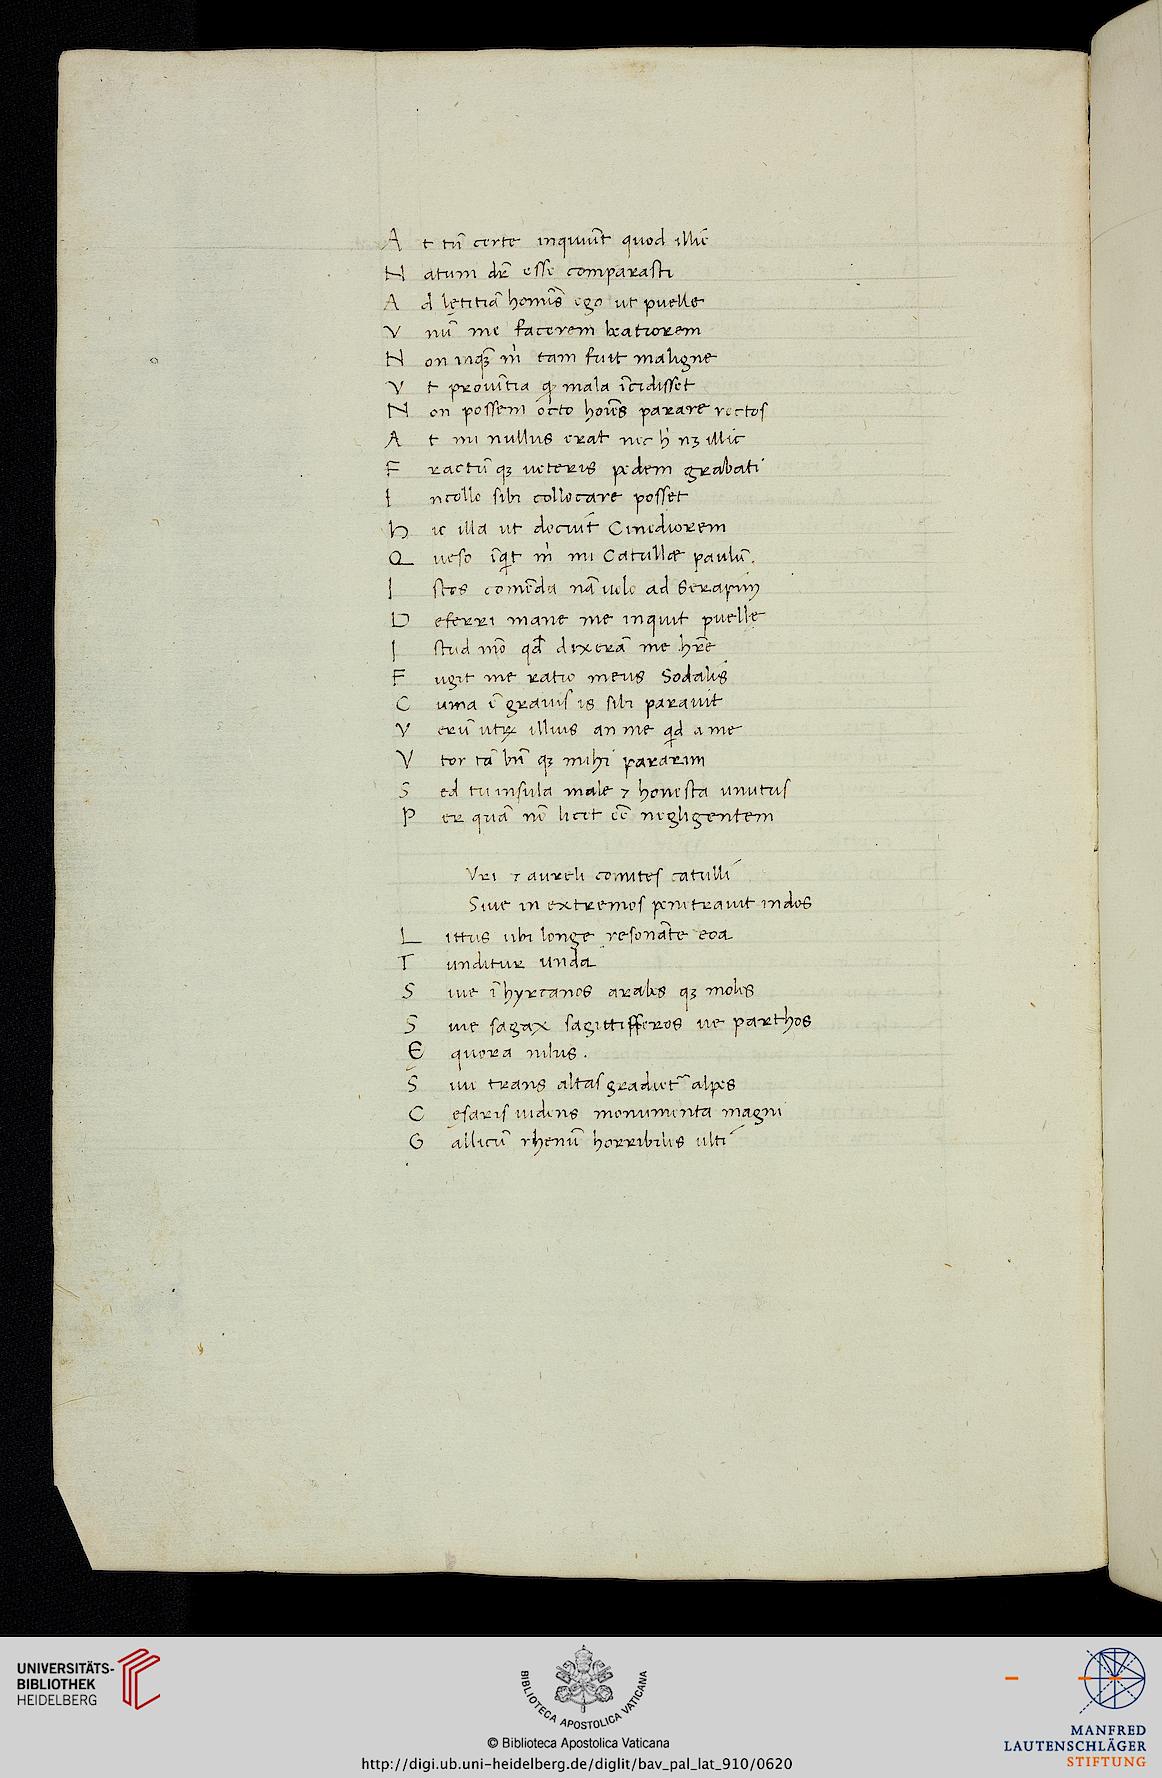 A t tū certe inquiūt quod illic
N atum dr̄ esse comparasti
A d lętitiā homīs ego ut puellę
V nū me facerem beatiorem
N on inqꝫ m̄ tam fuit maligne
V t prouītia ꝙ mala īcidisset
N on possem octo hoīes parare rectos
A t mi nullus erat nec h̄ nꝫ illic
F ractū qꝫ ueteris pedem grabati
I ncollo sibi collocare posset
H ic illa ut decuit Cinediorem
Q ueso īqͥt m̄ mi Catullæ paulū.
I stos comēda nā uolo ad Serapim
D eferri mane me inquit puellę
I stud mō qd̄ dixerā me hr̄e
F ugit me ratio meus Sodalis
C uma ē grauis is sibi parauit
V erū utꝝ illius an me qͥd a me
V tor tā bn̄ qꝫ mihi pararim
S ed tu insula male ⁊ honesta uiuitus
P er quā nō licet eē negligentem
Vri ⁊ aureli comites catulli
Siue in extremos penetrauit indos
L ittus ubi longe resonāte eoa
T unditur unda
S iue ī hyrcanos arabes qꝫ moles
S iue sagax sagittifferos ue parthos
Ę quora nilus.
S iui trans altas gradiet᷑ alpes
C ęsaris uidens monumenta magni
G allicū rhenū horribiles ulti
UNIVERSITÄTS-
BIBLIOTHEK
HEIDELBERG
BIBLIOTECA APOSTOLICA VATICANA
© Biblioteca Apostolica Vaticana
http://digi.ub.uni-heidelberg.de/diglit/bav_pal_lat_910/0620
MANFRED
LAUTENSCHLÄGER
STIFTUNG